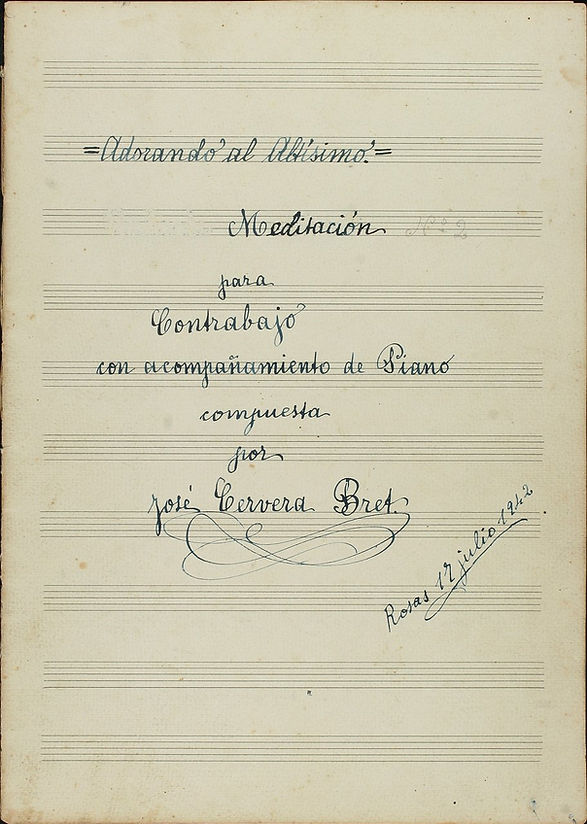 =Adorando al Altísimo.=
Meditación Nº 2
para
Contrabajo
con acompañamiento de Piano
compuesta
por
José Cervera Bret.
Rosas 17 julio 1942